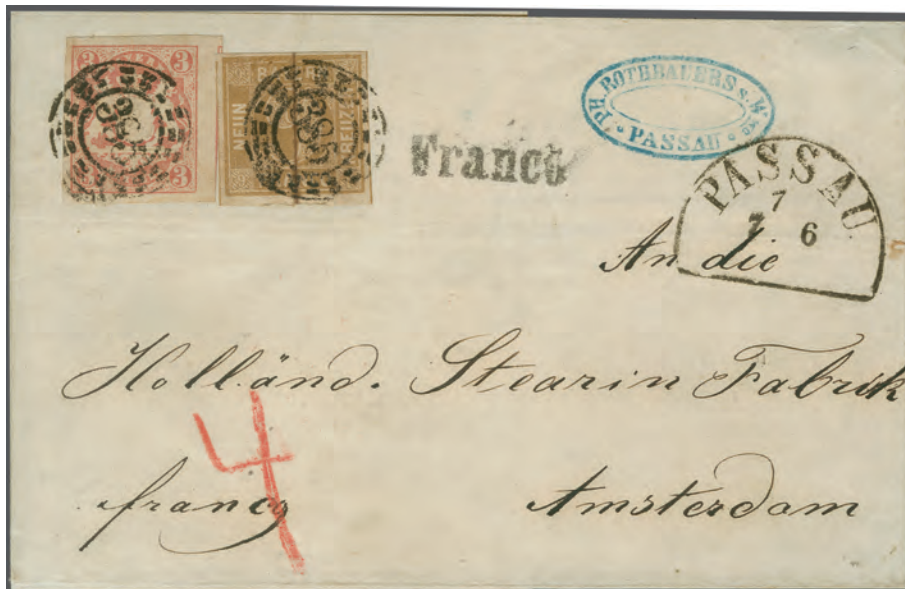 3 3
3 3
385
NEUN
385
Franco
Ph. ROTHBAUERS s. Wwe
PASSAU
PASSAU
7
7 6
An die
Holländ. Stearin Fabrik
4
franco
Amsterdam